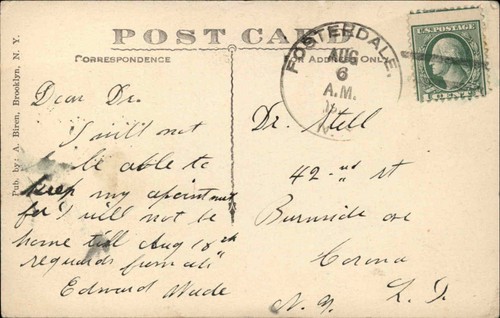 POST CARD
CORRESPONDENCE
ADDRESS ONLY
Pub. by: A. Biren, Brooklyn, N. Y.
FOSTERDALE,
AUG
6
A.M.
N.
U.S. POSTAGE
Dear Dr.
I will not
be able to
keep my apointment
for I will not be
home till Aug 18th
reguards from all
Edward Wade
Dr. Stell
42nd st
Burnside ave
Corona
N.Y. L.I.